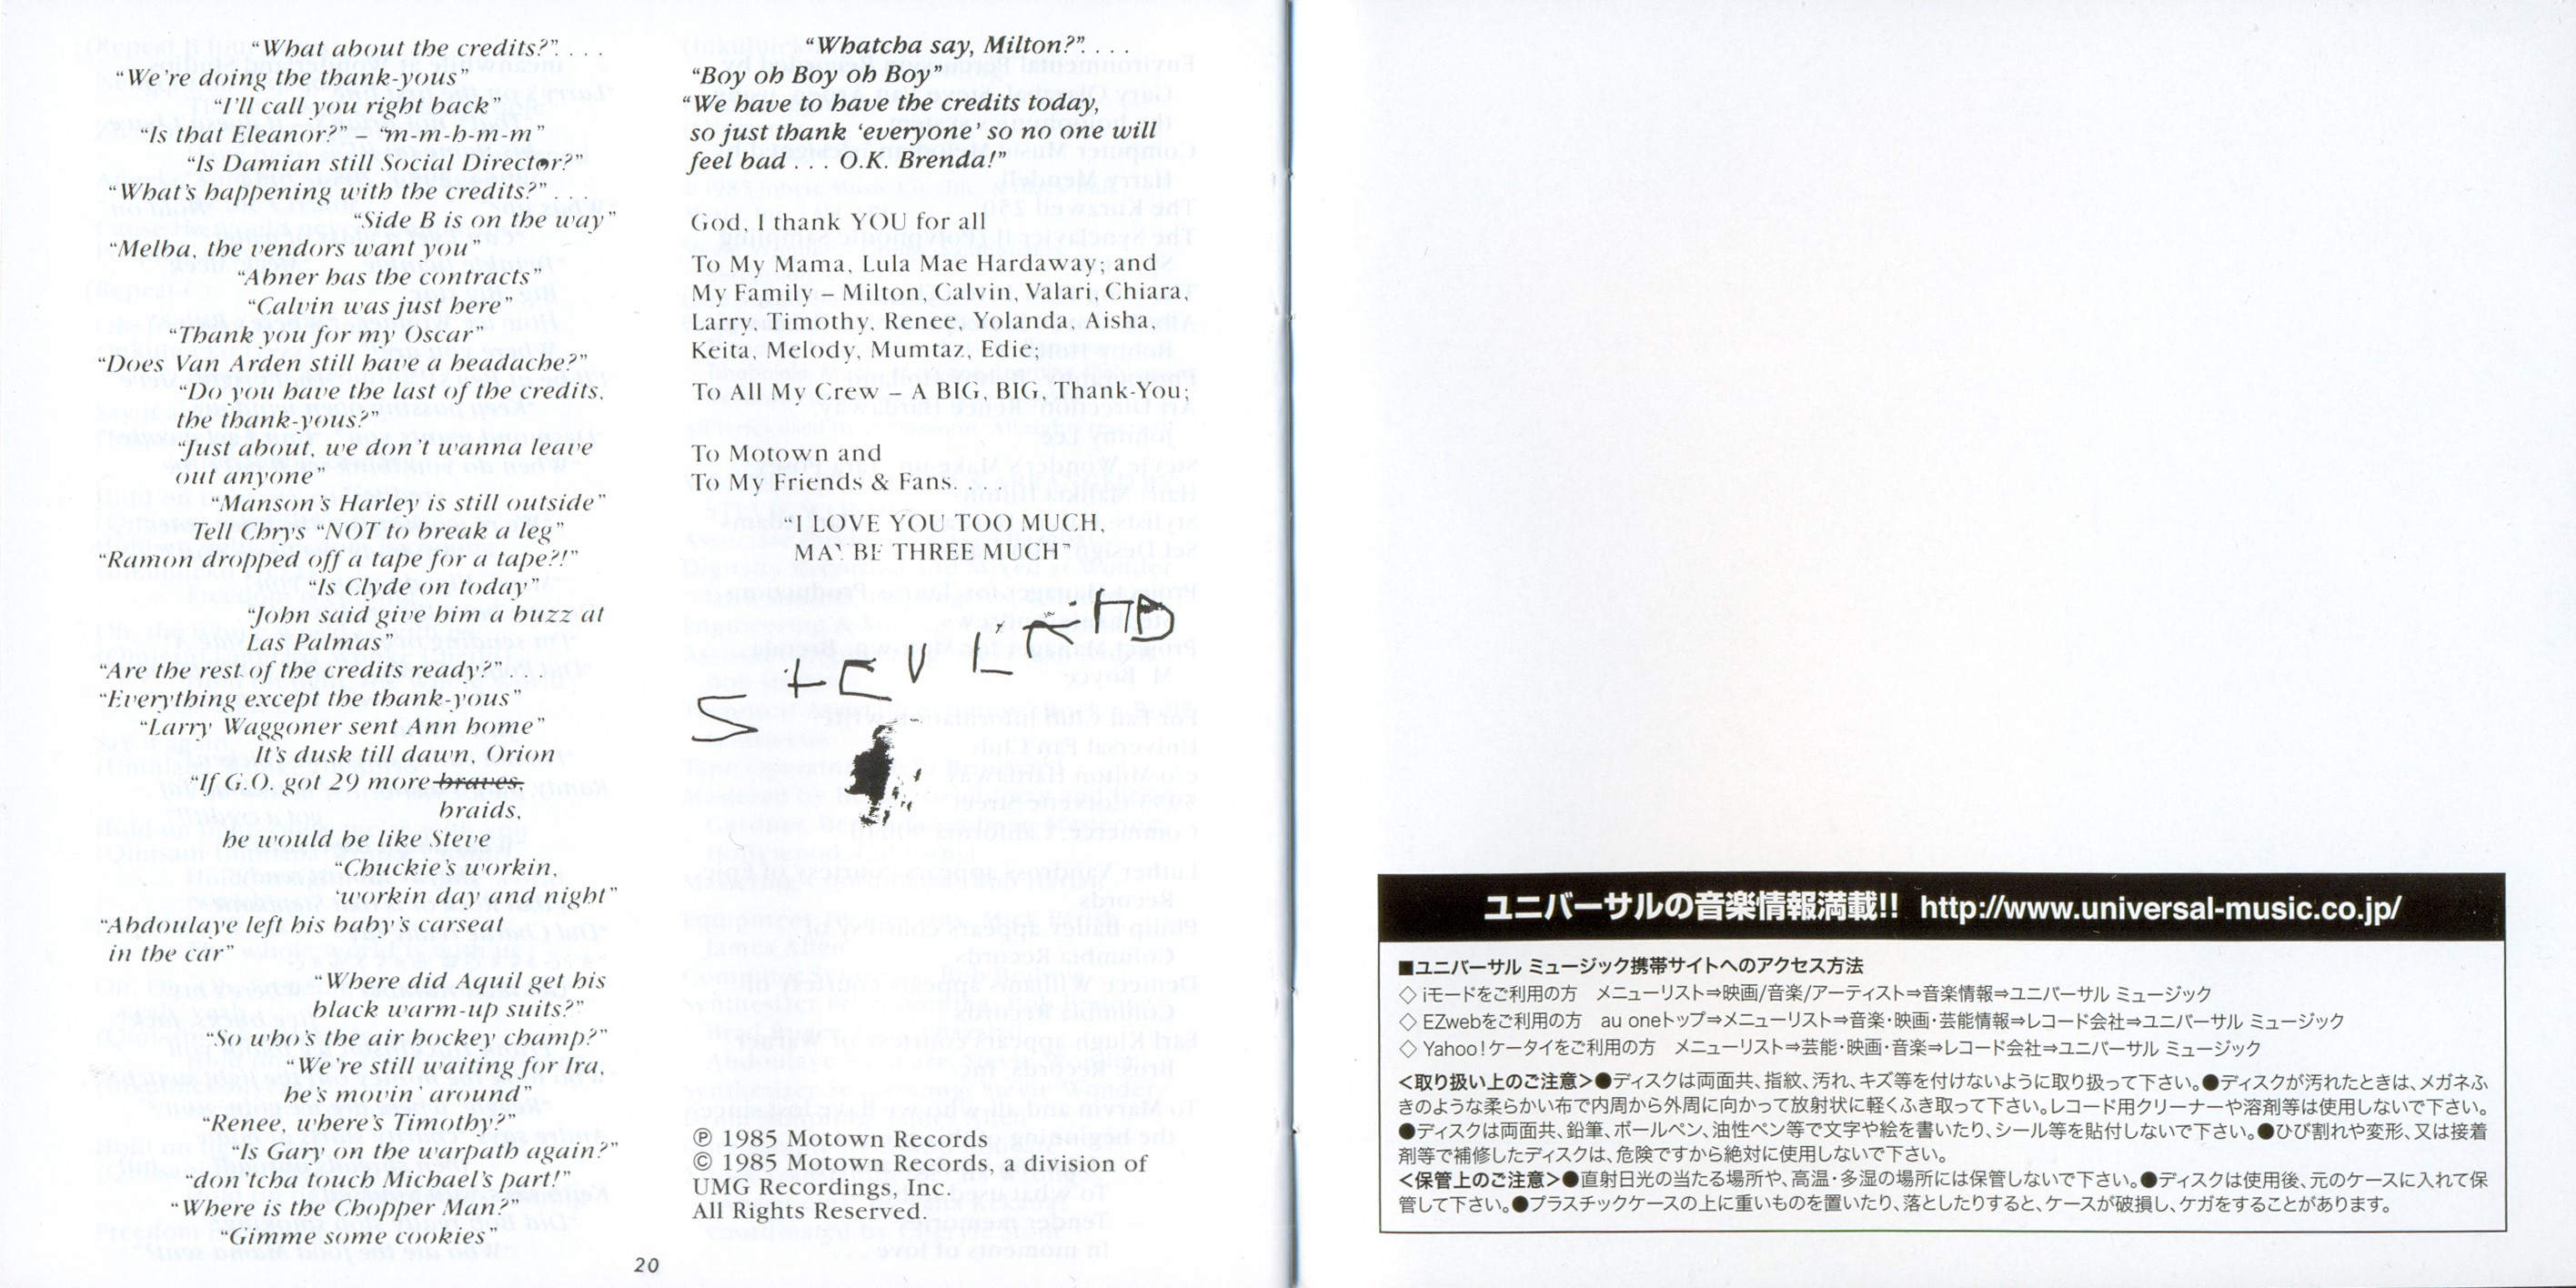 “What about the credits?”. . . .
“We’re doing the thank-yous”
“I’ll call you right back”
“Is that Eleanor?” – “m-m-h-m-m”
“Is Damian still Social Director?”
“What’s happening with the credits?” . . . .
“Side B is on the way”
“Melba, the vendors want you”
“Abner has the contracts”
“Calvin was just here”
“Thank you for my Oscar”
“Does Van Arden still have a headache?”
“Do you have the last of the credits,
the thank-yous?”
“Just about, we don’t wanna leave
out anyone”
“Manson’s Harley is still outside”
Tell Chrys “NOT to break a leg”
“Ramon dropped off a tape for a tape?!”
“Is Clyde on today”
“John said give him a buzz at
Las Palmas”
“Are the rest of the credits ready?”. . .
“Everything except the thank-yous”
“Larry Waggoner sent Ann home”
It’s dusk till dawn, Orion
“If G.O. got 29 more braves,
braids,
he would be like Steve
“Chuckie’s workin,
workin day and night”
“Abdoulaye left his baby’s carseat
in the car”
“Where did Aquil get his
black warm-up suits?”
“So who’s the air hockey champ?”
“We’re still waiting for Ira,
he’s movin’ around”
“Renee, where’s Timothy?”
“Is Gary on the warpath again?”
“don’tcha touch Michael’s part!”
“Where is the Chopper Man?”
“Gimme some cookies”
“Whatcha say, Milton?”. . . .
“Boy oh Boy oh Boy”
“We have to have the credits today,
so just thank ‘everyone’ so no one will
feel bad . . . . O.K. Brenda!”
God, I thank YOU for all
To My Mama, Lula Mae Hardaway; and
My Family – Milton, Calvin, Valari, Chiara,
Larry, Timothy, Renee, Yolanda, Aisha,
Keita, Melody, Mumtaz, Edie;
To All My Crew – A BIG, BIG, Thank-You;
To Motown and
To My Friends & Fans. . . .
“I LOVE YOU TOO MUCH,
MAYBE THREE MUCH”
℗ 1985 Motown Records
© 1985 Motown Records, a division of
UMG Recordings, Inc.
All Rights Reserved.
20
ユニバーサルの音楽情報満載!! http://www.universal-music.co.jp/
■ユニバーサル ミュージック携帯サイトへのアクセス方法
◇ iモードをご利用の方　メニューリスト⇒映画/音楽/アーティスト⇒音楽情報⇒ユニバーサル ミュージック
◇ EZwebをご利用の方　au oneトップ⇒メニューリスト⇒音楽・映画・芸能情報⇒レコード会社⇒ユニバーサル ミュージック
◇ Yahoo!ケータイをご利用の方　メニューリスト⇒芸能・映画・音楽⇒レコード会社⇒ユニバーサル ミュージック
<取り扱い上のご注意>●ディスクは両面共、指紋、汚れ、キズ等を付けないように取り扱って下さい。●ディスクが汚れたときは、メガネふ
きのような柔らかい布で内周から外周に向かって放射状に軽くふき取って下さい。レコード用クリーナーや溶剤等は使用しないで下さい。
●ディスクは両面共、鉛筆、ボールペン、油性ペン等で文字や絵を書いたり、シール等を貼付しないで下さい。●ひび割れや変形、又は接着
剤等で補修したディスクは、危険ですから絶対に使用しないで下さい。
<保管上のご注意>●直射日光の当たる場所や、高温・多湿の場所には保管しないで下さい。●ディスクは使用後、元のケースに入れて保
管して下さい。●プラスチックケースの上に重いものを置いたり、落としたりすると、ケースが破損し、ケガをすることがあります。